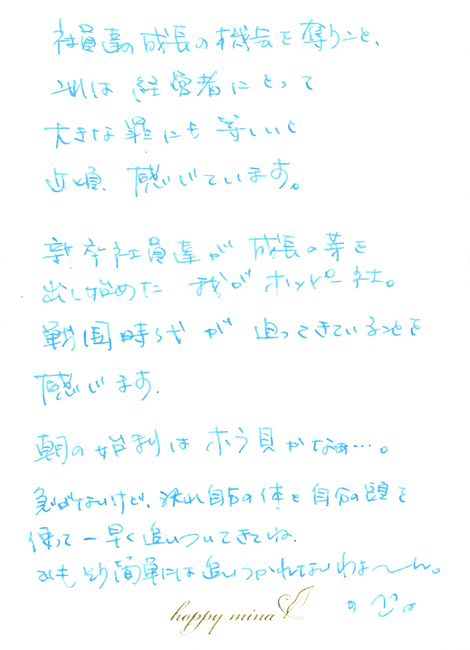 社員達の成長の機会を奪うこと、
これは 経営者にとって
大きな罪にも等しいと
近頃 感じています。
新卒社員達が 成長の芽を
出し始めた 我がホッピー社。
戦国時代が 迫ってきていることを
感じます.
朝の始利は ホラ貝かなぁ…。
急がないけど、決れ自分の体と自分の頭を
使って一早く追いついてきてね.
でも そう簡単には追いつかれないわよ〜ん。
happy mina
の